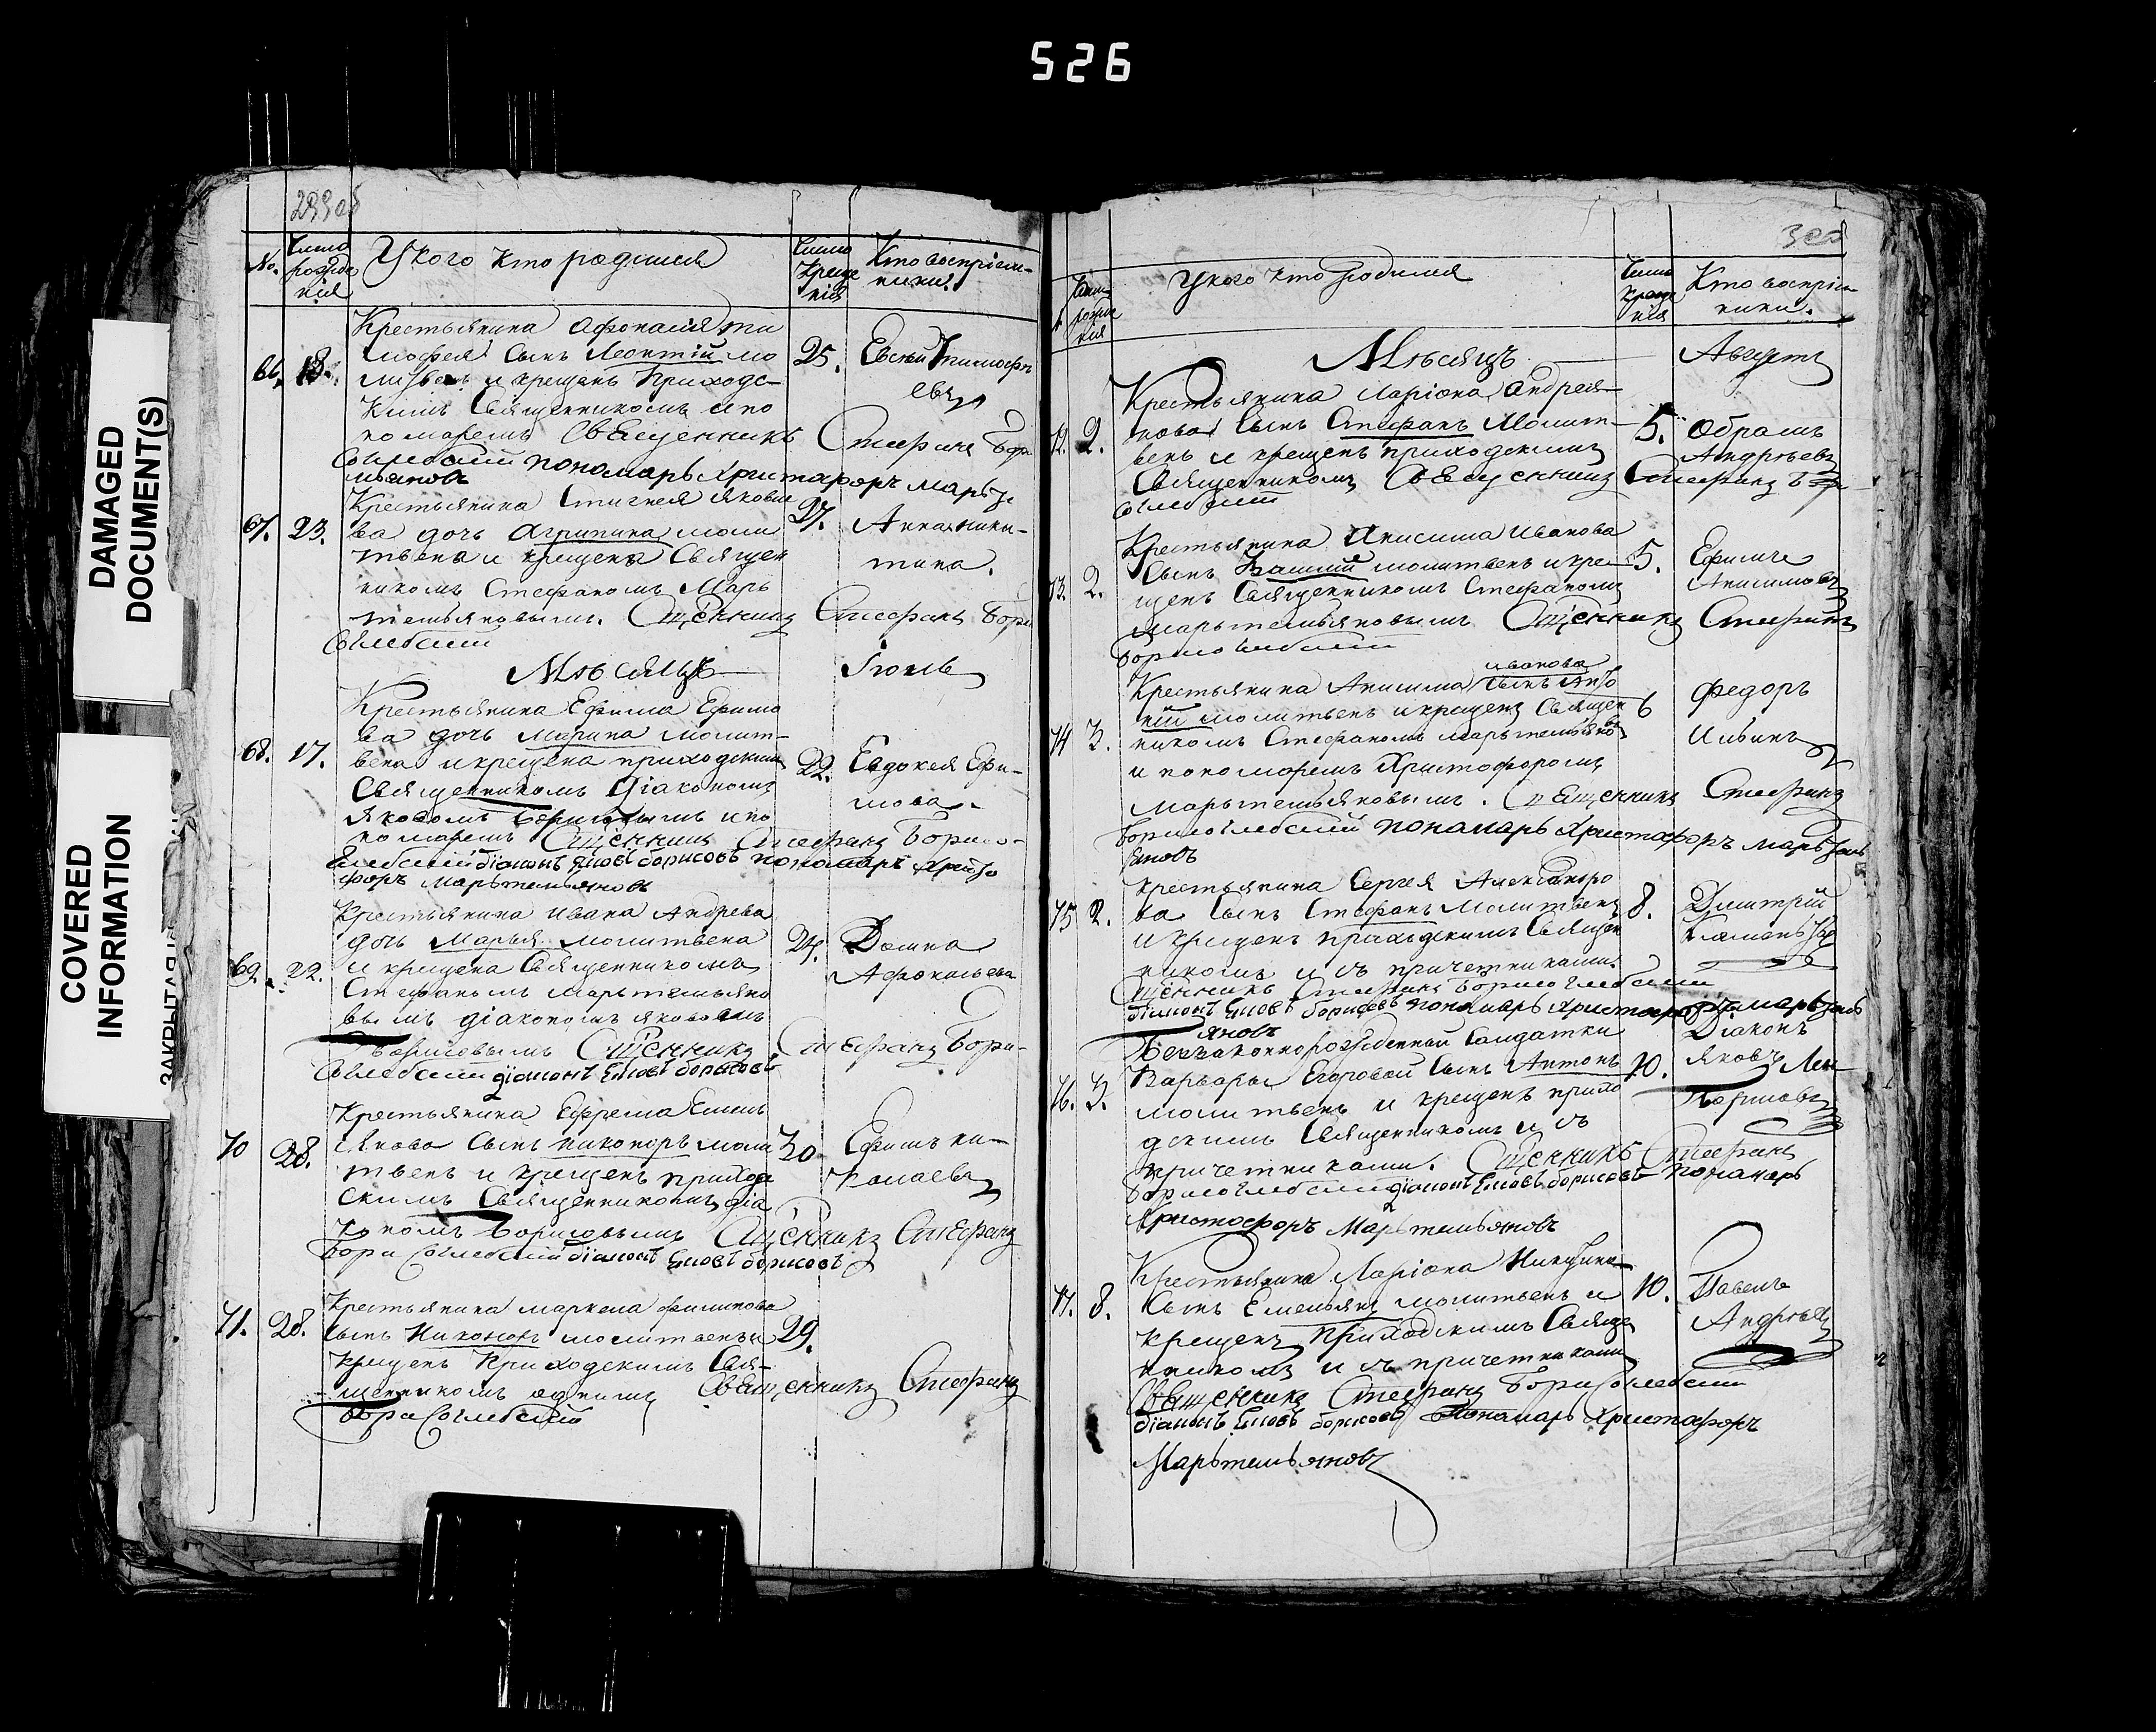 526
DAMAGED
DOCUMENT(S)
COVERED
INFORMATION
299об
No.
Число
рожде
нія
У кого кто родился
Число
креще
нія
Кто воспріем-
ники.
66. 18.
Крестьянина Афонасія Ти
мофеева сынъ Леонтій мо
литвенъ и крещенъ приходс-
кимъ священникомъ и по
номаремъ Священникъ Стефанъ Бори
соглебскій пономарь Христофоръ Марьте
мьяновъ
25.
Евсѣй Тимофѣ
евъ
67. 23.
Крестьянина Яковле
ва дочь Агрипина моли
твена и крещена Священ
никомъ Стефаномъ Марь
темьяновымъ. Сщенникъ Стефанъ Бори
Соглебскій
27.
Анна Ники-
тина.
Мѣсяцъ Іюль
68. 17.
Крестьянина Ефима Ефимо
ва дочь Марина молит-
вена и крещена приходскимъ
Священникомъ діакономъ
Яковомъ Борисовымъ и по
номаремъ Сщенникъ Стефанъ Борисо-
Глебскій діаконъ Яковъ Борисовъ пономарь Христо
форъ Марьтемьяновъ
22.
Евдокея Ефи-
мова.
69. 22.
Крестьянина Ивана Андрева
дочь Марья молитвена
и крещена Священникомъ
Стефаномъ Марьтемьяно
вымъ діакономъ Яковомъ
Борисовымъ Сщенникъ Стефанъ Бори-
Соглебскій діаконъ Яковъ Борисовъ
24.
Домна
Афонасьева
70 28.
Крестьянина Ефрема Емель
янова сынъ Никоноръ моли
твенъ и крещенъ приход
скимъ Священникомъ діа
кономъ Борисовымъ Сщенникъ Стефанъ
БориСоглебскій діаконъ Яковъ Борисовъ
30
Ефимъ Ни-
колаевъ
71. 28.
Крестьянина Маркела Филипова
сынъ Никоноръ молитвенъ и
крещенъ приходскимъ Свя-
щенникомъ однимъ Священникъ Стефанъ
БориСоглебскій
29.
Число
рожде
нія
У кого кто родился
Число
креще
нія
Кто воспріем
ники.
Мѣсяцъ Августъ
72. 2.
Крестьянина Ларіона Андрея-
нова сынъ Стефанъ молит-
венъ и крещенъ приходскимъ
Священникомъ Священникъ Стефанъ Бори
Соглебскій
5.
Абрамъ
Андрѣевъ
73. 2.
Крестьянина Анисима Иванова
сынъ молитвенъ и кре-
щенъ Священникомъ Стефаномъ
Марьтемьяновымъ Сщенникъ Стефанъ
БорисоГлебскій
5.
Ефимъ
Анисимовъ
74 3.
Иванова
Крестьянина Анисима сынъ Анто
ній молитвенъ и крещенъ Священ
никомъ Стефаномъ Марьтемьяно
и пономаремъ Христофоромъ
Марьтемьяновымъ. Сщенникъ Стефанъ
БорисоГлебскій пономарь Христофоръ Марьтемь
яновъ
6
Федоръ
Ильинъ
75 2.
Крестьянина Сергея Александро
ва сынъ Стефанъ молитвенъ
и крещенъ приходскимъ Священ
никомъ и съ причетниками.
Сщенникъ Стефанъ Борисоглебскій
діаконъ Яковъ Борисовъ пономарь Христофоръ Марьтемь
яновъ
8.
Димитрій
76. 3.
Беззаконнорожденный солдатки
Варвары Егоровой сынъ Антонъ
молитвенъ и крещенъ прихо
дскимъ Священникомъ и съ
причетниками. Сщенникъ Стефанъ
Борисоглебскій діаконъ Яковъ Борисовъ пономарь
Христофоръ Марьтемьяновъ
10.
Діаконъ
Яковъ
Борисовъ
77. 8.
Крестьянина Ларіона Никитина
сынъ Емельянъ молитвенъ и
крещенъ приходскимъ Свяще
нникомъ и съ причетниками
Священникъ Стефанъ БориСоглебскій
діаконъ Яковъ Борисовъ Пономарь Христофоръ
Марьтемьяновъ
10.
Павелъ
Андрѣевъ